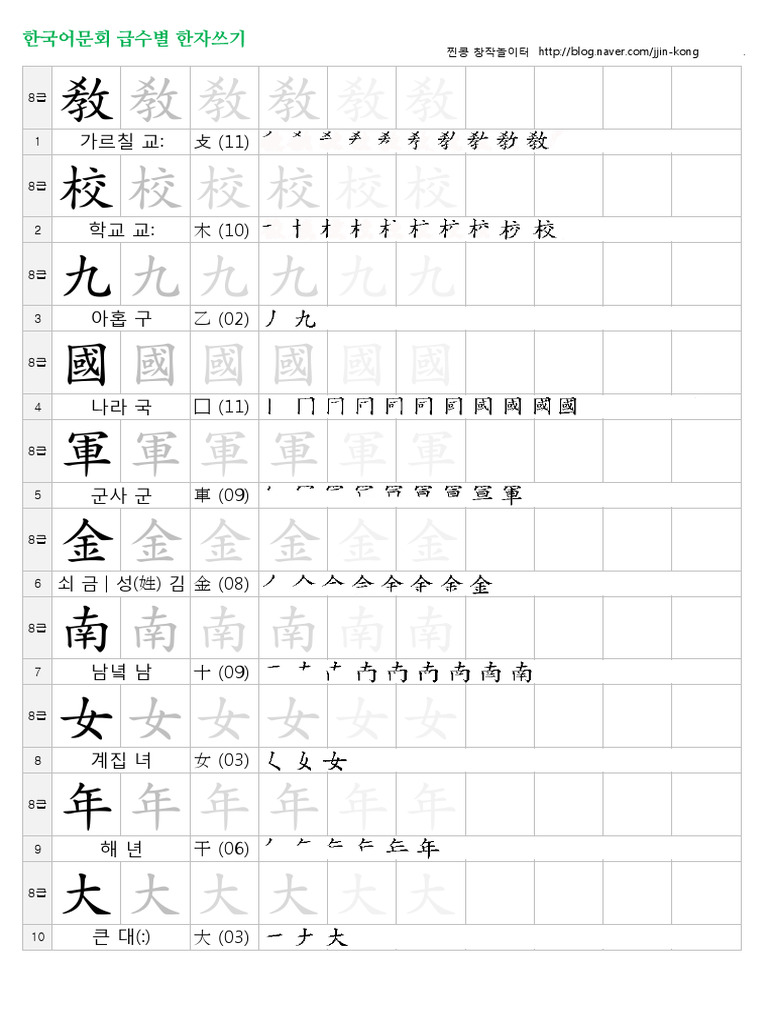 한국어문회 급수별 한자쓰기
찐콩 창작놀이터 http://blog.naver.com/jjin-kong
8급 教 教 教 教 教 教
1 가르칠 교: 攴 (11)
8급 校 校 校 校 校 校
2 학교 교: 木 (10) 一 十 才 木 校
8급 九 九 九 九 九 九
3 아홉 구 乙 (02) 丿 九
8급 國 國 國 國 國 國
4 나라 국 囗 (11) 丨 冂 國
8급 軍 軍 軍 軍 軍 軍
5 군사 군 車 (09) 軍
8급 金 金 金 金 金 金
6 쇠 금 | 성(姓) 김 金 (08) 丿 人 金
8급 南 南 南 南 南 南
7 남녘 남 十 (09) 一 十 南
8급 女 女 女 女 女 女
8 계집 녀 女 (03) 女
8급 年 年 年 年 年 年
9 해 년 干 (06) 年
8급 大 大 大 大 大 大
10 큰 대(:) 大 (03) 一 ナ 大